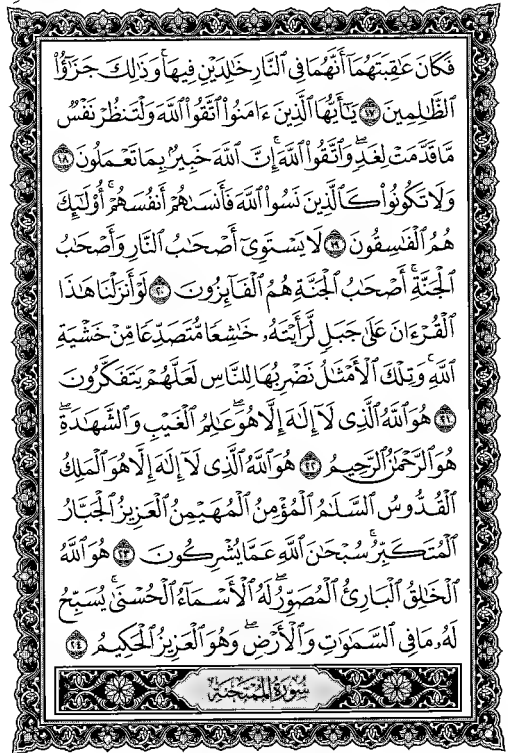 فَكَانَ عَٰقِبَتَهُمَآ أَنَّهُمَا فِي ٱلنَّارِ خَٰلِدَيۡنِ فِيهَاۚ وَذَٰلِكَ جَزَٰٓؤُاْ
ٱلظَّٰلِمِينَ ١٧ يَٰٓأَيُّهَا ٱلَّذِينَ ءَامَنُواْ ٱتَّقُواْ ٱللَّهَ وَلۡتَنظُرۡ نَفۡسٞ
مَّا قَدَّمَتۡ لِغَدٖۖ وَٱتَّقُواْ ٱللَّهَۚ إِنَّ ٱللَّهَ خَبِيرُۢ بِمَا تَعۡمَلُونَ ١٨
وَلَا تَكُونُواْ كَٱلَّذِينَ نَسُواْ ٱللَّهَ فَأَنسَىٰهُمۡ أَنفُسَهُمۡۚ أُوْلَٰٓئِكَ
هُمُ ٱلۡفَٰسِقُونَ ١٩ لَا يَسۡتَوِيٓ أَصۡحَٰبُ ٱلنَّارِ وَأَصۡحَٰبُ
ٱلۡجَنَّةِۚ أَصۡحَٰبُ ٱلۡجَنَّةِ هُمُ ٱلۡفَآئِزُونَ ٢٠ لَوۡ أَنزَلۡنَا هَٰذَا
ٱلۡقُرۡءَانَ عَلَىٰ جَبَلٖ لَّرَأَيۡتَهُۥ خَٰشِعٗا مُّتَصَدِّعٗا مِّنۡ خَشۡيَةِ
ٱللَّهِۚ وَتِلۡكَ ٱلۡأَمۡثَٰلُ نَضۡرِبُهَا لِلنَّاسِ لَعَلَّهُمۡ يَتَفَكَّرُونَ
٢١ هُوَ ٱللَّهُ ٱلَّذِي لَآ إِلَٰهَ إِلَّا هُوَۖ عَٰلِمُ ٱلۡغَيۡبِ وَٱلشَّهَٰدَةِۖ
هُوَ ٱلرَّحۡمَٰنُ ٱلرَّحِيمُ ٢٢ هُوَ ٱللَّهُ ٱلَّذِي لَآ إِلَٰهَ إِلَّا هُوَ ٱلۡمَلِكُ
ٱلۡقُدُّوسُ ٱلسَّلَٰمُ ٱلۡمُؤۡمِنُ ٱلۡمُهَيۡمِنُ ٱلۡعَزِيزُ ٱلۡجَبَّارُ
ٱلۡمُتَكَبِّرُۚ سُبۡحَٰنَ ٱللَّهِ عَمَّا يُشۡرِكُونَ ٢٣ هُوَ ٱللَّهُ
ٱلۡخَٰلِقُ ٱلۡبَارِئُ ٱلۡمُصَوِّرُۖ لَهُ ٱلۡأَسۡمَآءُ ٱلۡحُسۡنَىٰۚ يُسَبِّحُ
لَهُۥ مَا فِي ٱلسَّمَٰوَٰتِ وَٱلۡأَرۡضِۖ وَهُوَ ٱلۡعَزِيزُ ٱلۡحَكِيمُ ٢٤
سُورَةُ ٱلۡمُمۡتَحنَةِ